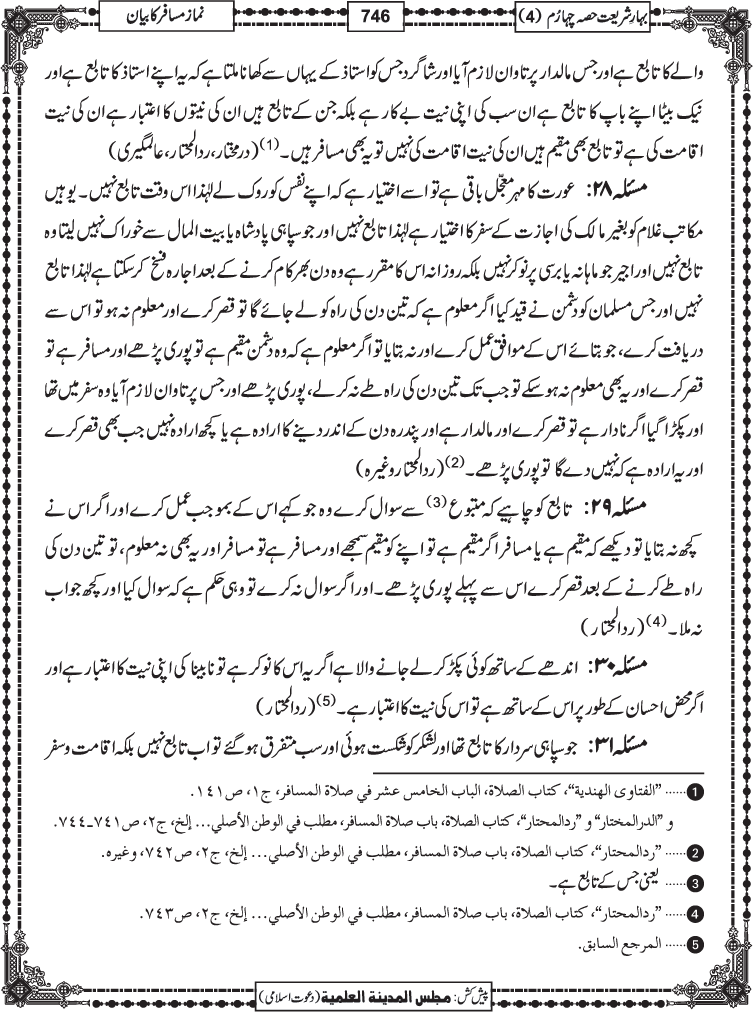 بہارِ شریعت حصہ چہارم (4)
746
نمازِ مسافر کا بیان
والے کا تابع ہے اور جس مالدار پر تاوان لازم آیا اور شاگرد جس کو استاذ کے یہاں سے کھانا ملتا ہے کہ یہ اپنے استاذ کا تابع ہے اور
نیک بیٹا اپنے باپ کا تابع ہے ان سب کی اپنی نیت بے کار ہے بلکہ جن کے تابع ہیں ان کی نیتوں کا اعتبار ہے ان کی نیت
اقامت کی ہے تو تابع بھی مقیم ہیں ان کی نیت اقامت کی نہیں تو یہ بھی مسافر ہیں۔(1) (درمختار، ردالمحتار، عالمگیری)
مسئلہ ۲۸: عورت کا مہر معجّل باقی ہے تو اسے اختیار ہے کہ اپنے نفس کو روک لے لہٰذا اس وقت تابع نہیں۔ یوہیں
مکاتب غلام کو بغیر مالک کی اجازت کے سفر کا اختیار ہے لہٰذا تابع نہیں اور جو سپاہی پادشاہ یا بیت المال سے خوراک نہیں لیتا وہ
تابع نہیں اور اجیر جو ماہانہ یا برسی پر نوکر نہیں بلکہ روزانہ اس کا مقرر ہے وہ دن بھر کام کرنے کے بعد اجارہ فسخ کر سکتا ہے لہٰذا تابع
نہیں اور جس مسلمان کو دشمن نے قید کیا اگر معلوم ہے کہ تین دن کی راہ کو لے جائے گا تو قصر کرے اور معلوم نہ ہو تو اس سے
دریافت کرے، جو بتائے اس کے موافق عمل کرے اور نہ بتایا تو اگر معلوم ہے کہ وہ دشمن مقیم ہے تو پوری پڑھے اور مسافر ہے تو
قصر کرے اور یہ بھی معلوم نہ ہو سکے تو جب تک تین دن کی راہ طے نہ کرلے، پوری پڑھے اور جس پر تاوان لازم آیا وہ سفر میں تھا
اور پکڑا گیا اگر نادار ہے تو قصر کرے اور مالدار ہے اور پندرہ دن کے اندر دینے کا ارادہ ہے یا کچھ ارادہ نہیں جب بھی قصر کرے
اور یہ ارادہ ہے کہ نہیں دے گا تو پوری پڑھے۔(2) (ردالمحتار وغیرہ)
مسئلہ ۲۹: تابع کو چاہیے کہ متبوع (3) سے سوال کرے وہ جو کہے اس کے بموجب عمل کرے اور اگر اس نے
کچھ نہ بتایا تو دیکھے کہ مقیم ہے یا مسافر اگر مقیم ہے تو اپنے کو مقیم سمجھے اور مسافر ہے تو مسافر اور یہ بھی نہ معلوم، تو تین دن کی
راہ طے کرنے کے بعد قصر کرے اس سے پہلے پوری پڑھے۔ اور اگر سوال نہ کرے تو وہی حکم ہے کہ سوال کیا اور کچھ جواب
نہ ملا۔(4) (ردالمحتار)
مسئلہ ۳۰: اندھے کے ساتھ کوئی پکڑ کر لے جانے والا ہے اگر یہ اس کا نوکر ہے تو نابینا کی اپنی نیت کا اعتبار ہے اور
اگر محض احسان کے طور پر اس کے ساتھ ہے تو اس کی نیت کا اعتبار ہے۔(5) (ردالمحتار)
مسئلہ ۳۱: جو سپاہی سردار کا تابع تھا اور لشکر کو شکست ہوئی اور سب متفرق ہو گئے تو اب تابع نہیں بلکہ اقامت و سفر
1 ...... ”الفتاوی الهندیة“، کتاب الصلاة، الباب الخامس عشر في صلاة المسافر، ج١، ص١٤١.
و ”الدرالمختار“ و ”ردالمحتار“، کتاب الصلاة، باب صلاة المسافر، مطلب في الوطن الأصلي... إلخ، ج٢، ص٧٤١ـ٧٤٤.
2 ...... ”ردالمحتار“، کتاب الصلاة، باب صلاة المسافر، مطلب في الوطن الأصلي... إلخ، ج٢، ص٧٤٢، وغیره.
3 ...... یعنی جس کے تابع ہے۔
4 ...... ”ردالمحتار“، کتاب الصلاة، باب صلاة المسافر، مطلب في الوطن الأصلي... إلخ، ج٢، ص٧٤٣.
5 ...... المرجع السابق.
پیش کش: مجلس المدینة العلمیة (دعوت اسلامی)